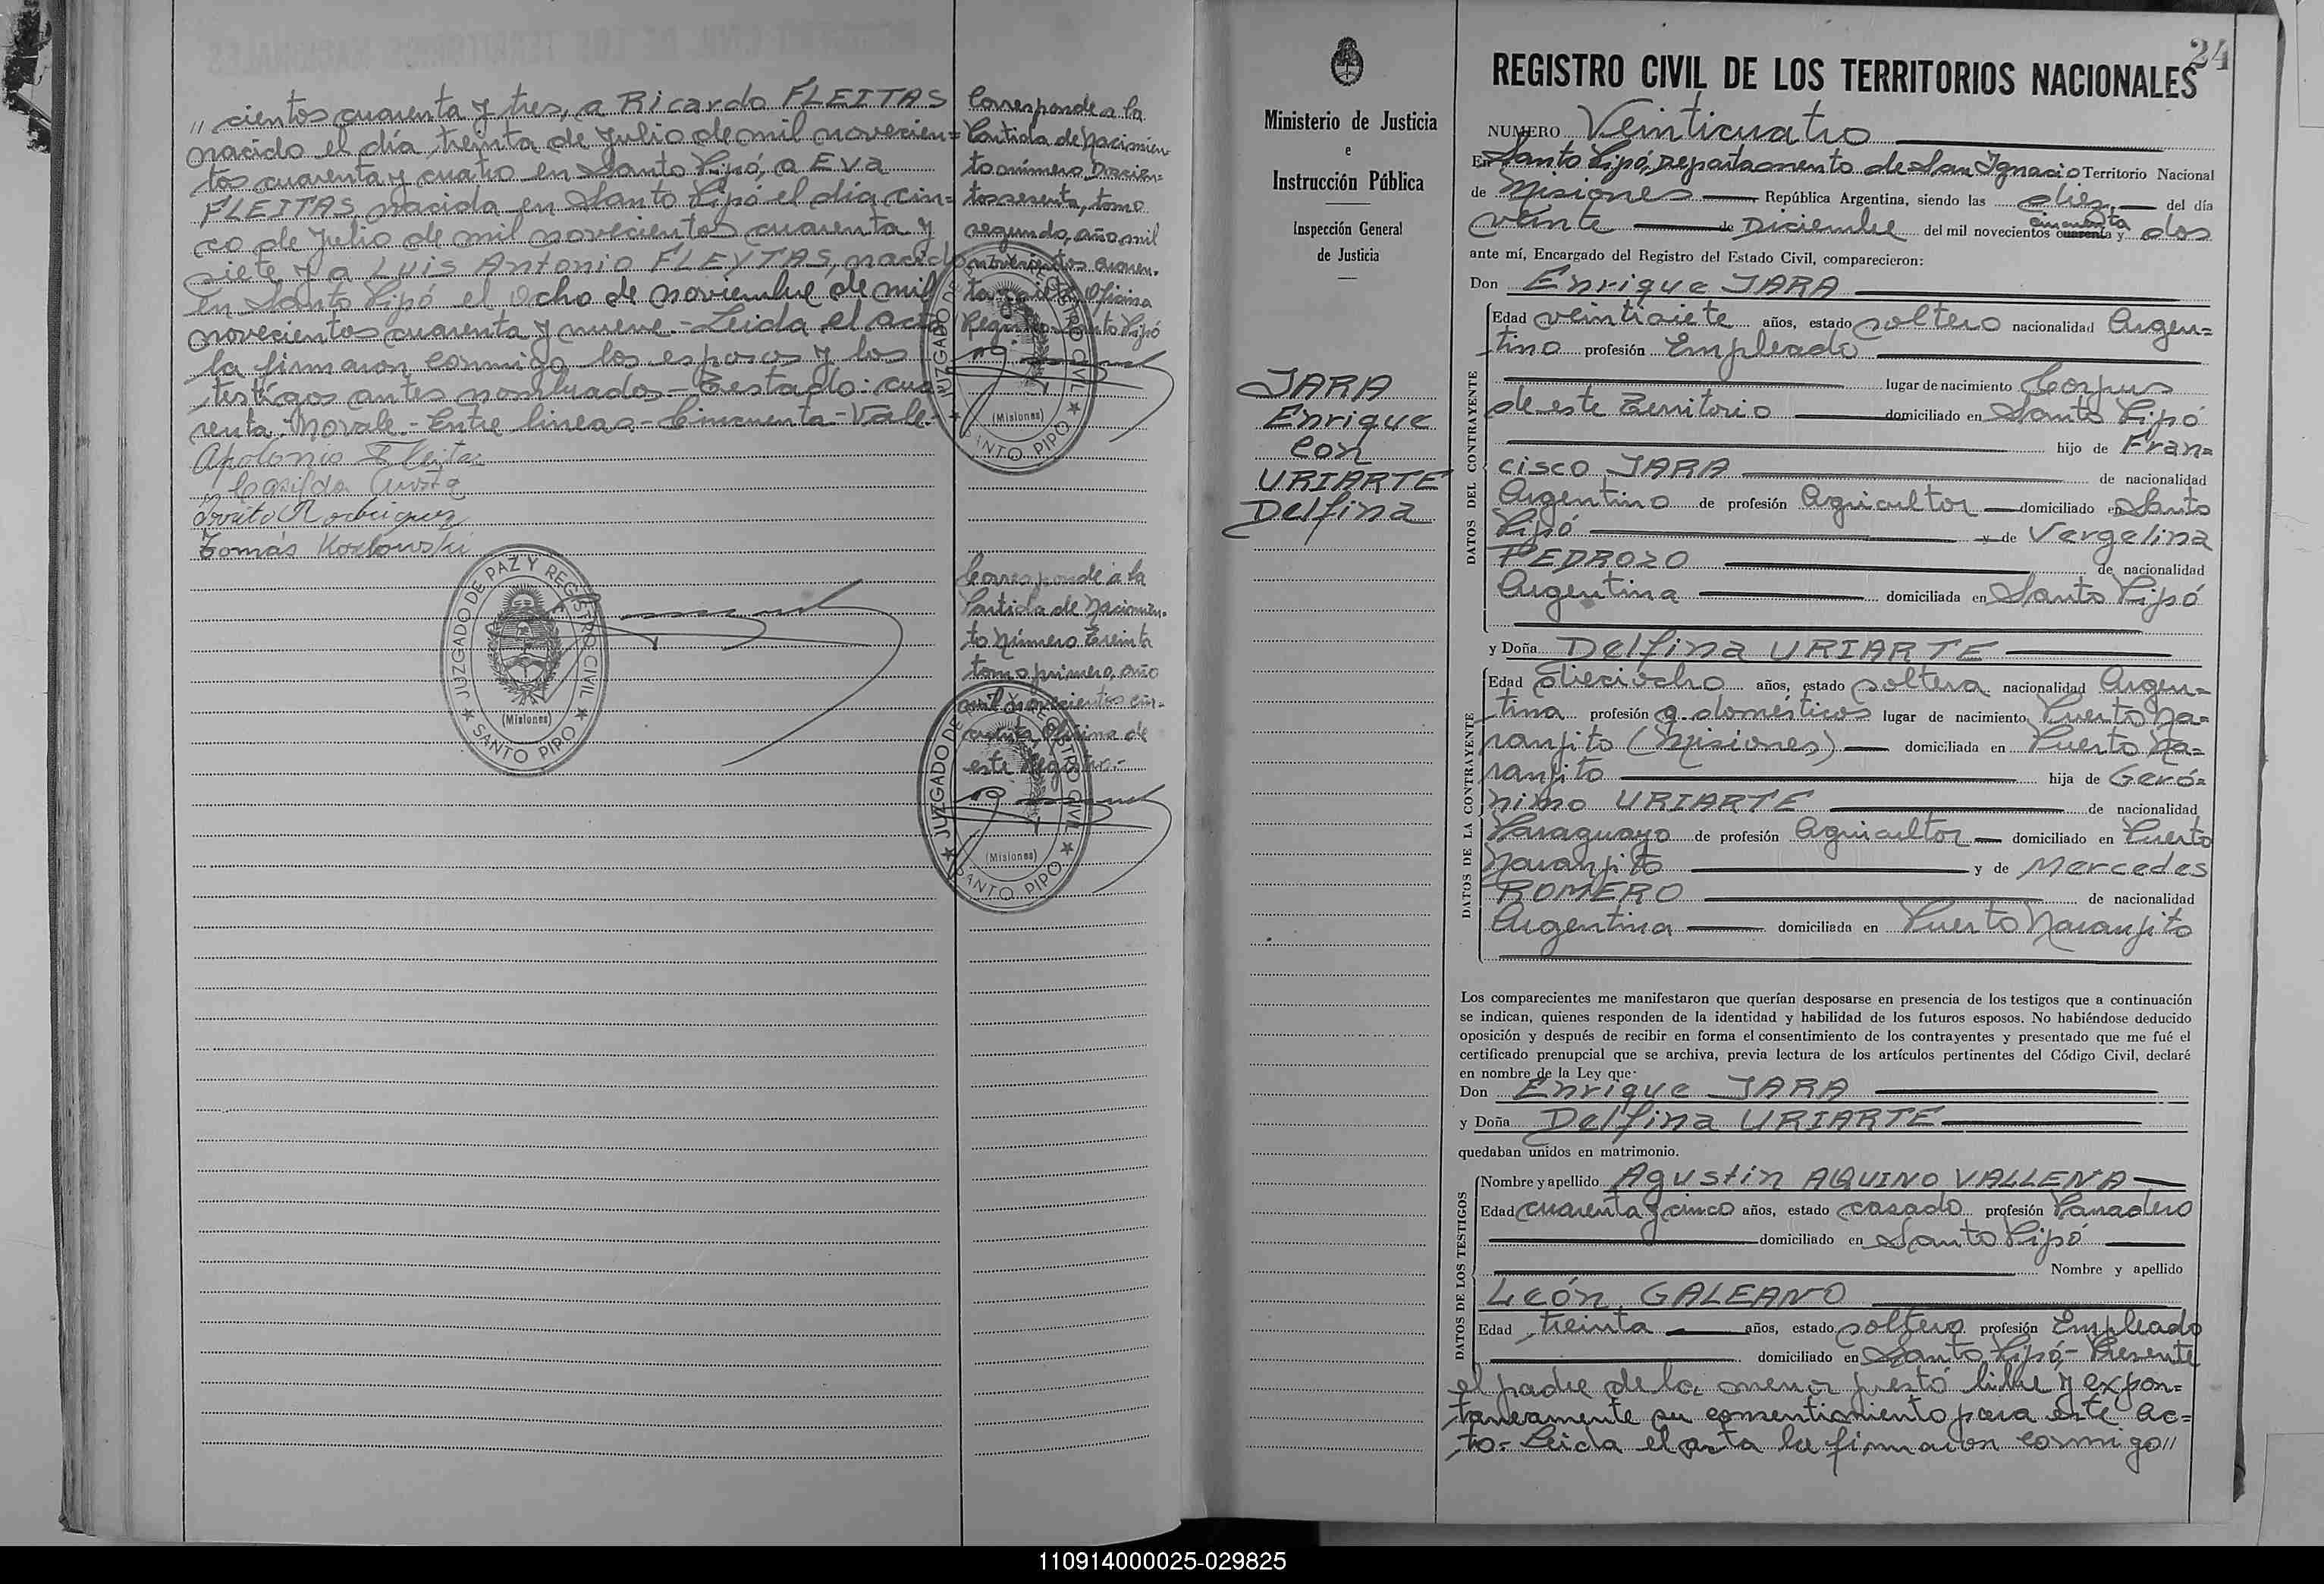 " cientos cuarenta y tres, a Ricardo FLEITAS
nacido el día treinta de Julio de mil novecien=
tos cuarenta y cuatro en Santo Pipó, a Eva
FLEITAS, nacida en Santo Pipó el día cin=
co de Julio de mil novecientos cuarenta y
siete y a Luis Antonio FLEYTAS, nacido
en Santo Pipó el ocho de noviembre de mil
novecientos cuarenta y nueve.- Leida el acta
la firmaron conmigo los esposos y los
testigos antes nombrados- Testado: cua
renta- No vale.- Entre lineas- Cincuenta- Vale.-
Apolonio Fleitas
Casilda Acosta
Rodriguez
Tomás Kozlowski
JUZGADO DE PAZ Y REGISTRO CIVIL
(Misiones)
SANTO PIPO
Corresponde a la
Partida de Nacimien
to número Doscien=
tos sesenta, tomo
segundo, año mil
novecientos cuaren.
ta y siete Oficina
Registro Santo Pipó
JUZGADO DE PAZ Y REGISTRO CIVIL
(Misiones)
SANTO PIPO
Corresponde a la
Partida de Nacimien.
to Número Treinta
tomo primero, año
mil novecientos cin=
cuenta, Oficina de
este Registro.-
JUZGADO DE PAZ Y REGISTRO CIVIL
(Misiones)
SANTO PIPO
Ministerio de Justicia
e
Instrucción Pública
Inspección General
de Justicia
JARA
Enrique
con
URIARTE
Delfina
24
REGISTRO CIVIL DE LOS TERRITORIOS NACIONALES
NUMERO Veinticuatro
En Santo Pipó, Departamento de San Ignacio Territorio Nacional
de Misiones República Argentina, siendo las diez del día
veinte de Diciembre del mil novecientos cuarenta cincuenta y dos
ante mí, Encargado del Registro del Estado Civil, comparecieron:
Don Enrique JARA
DATOS DEL CONTRAYENTE
Edad veintisiete años, estado soltero nacionalidad Argen=
tino profesión Empleado
lugar de nacimiento Corpus
de este Territorio domiciliado en Santo Pipó
hijo de Fran=
cisco JARA de nacionalidad
Argentino de profesión Agricultor domiciliado en Santo
Pipó y de Vergelina
PEDROZO de nacionalidad
Argentina domiciliada en Santo Pipó
y Doña Delfina URIARTE
DATOS DE LA CONTRAYENTE
Edad dieciocho años, estado soltera nacionalidad Argen=
tina profesión q. domésticos lugar de nacimiento Puerto Na=
ranjito (Misiones) domiciliada en Puerto Na=
ranjito hija de Geró=
nimo URIARTE de nacionalidad
Paraguayo de profesión Agricultor domiciliado en Puerto
Naranjito y de Mercedes
ROMERO de nacionalidad
Argentina domiciliada en Puerto Naranjito
Los comparecientes me manifestaron que querían desposarse en presencia de los testigos que a continuación
se indican, quienes responden de la identidad y habilidad de los futuros esposos. No habiéndose deducido
oposición y después de recibir en forma el consentimiento de los contrayentes y presentado que me fué el
certificado prenupcial que se archiva, previa lectura de los artículos pertinentes del Código Civil, declaré
en nombre de la Ley que:
Don Enrique JARA
y Doña Delfina URIARTE
quedaban unidos en matrimonio.
DATOS DE LOS TESTIGOS
Nombre y apellido Agustin AQUINO VALLENA
Edad cuarenta y cinco años, estado casado profesión Panadero
domiciliado en Santo Pipó
Nombre y apellido
León GALEANO
Edad treinta años, estado soltero profesión Empleado
domiciliado en Santo Pipó.- Presente
el padre de la menor prestó libre y expon=
taneamente su consentimiento para este ac=
to- Leida el acta la firmaron conmigo "
110914000025-029825